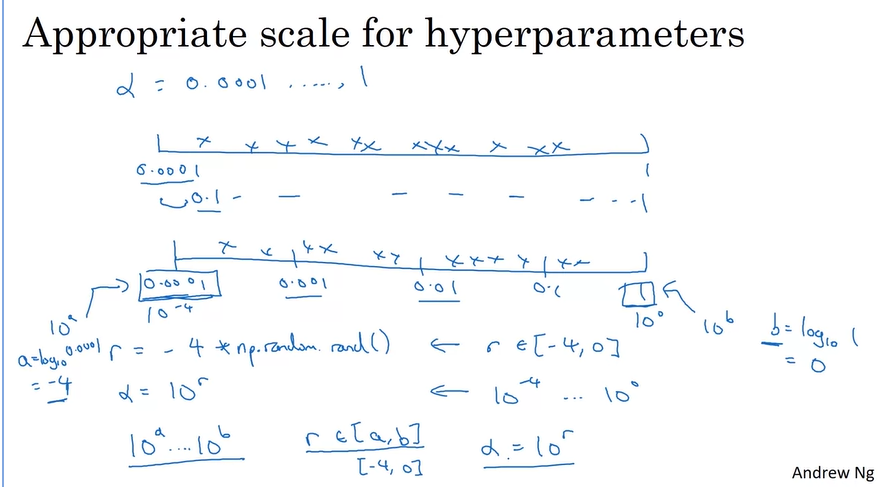 Appropriate scale for hyperparameters
α = 0.0001 ....., 1
0.0001 1
0.1 - - - - - - - - 1
0.0001 0.001 0.01 0.1 1
10^-4 10^0
10^a 10^b b = log₁₀ 1
= 0
a = log₁₀ 0.0001
= -4
r = -4 * np.random.rand() ← r ∈ [-4, 0]
α = 10^r ← 10^-4 ... 10^0
10^a .... 10^b r ∈ [a, b] α = 10^r
[-4, 0]
Andrew Ng